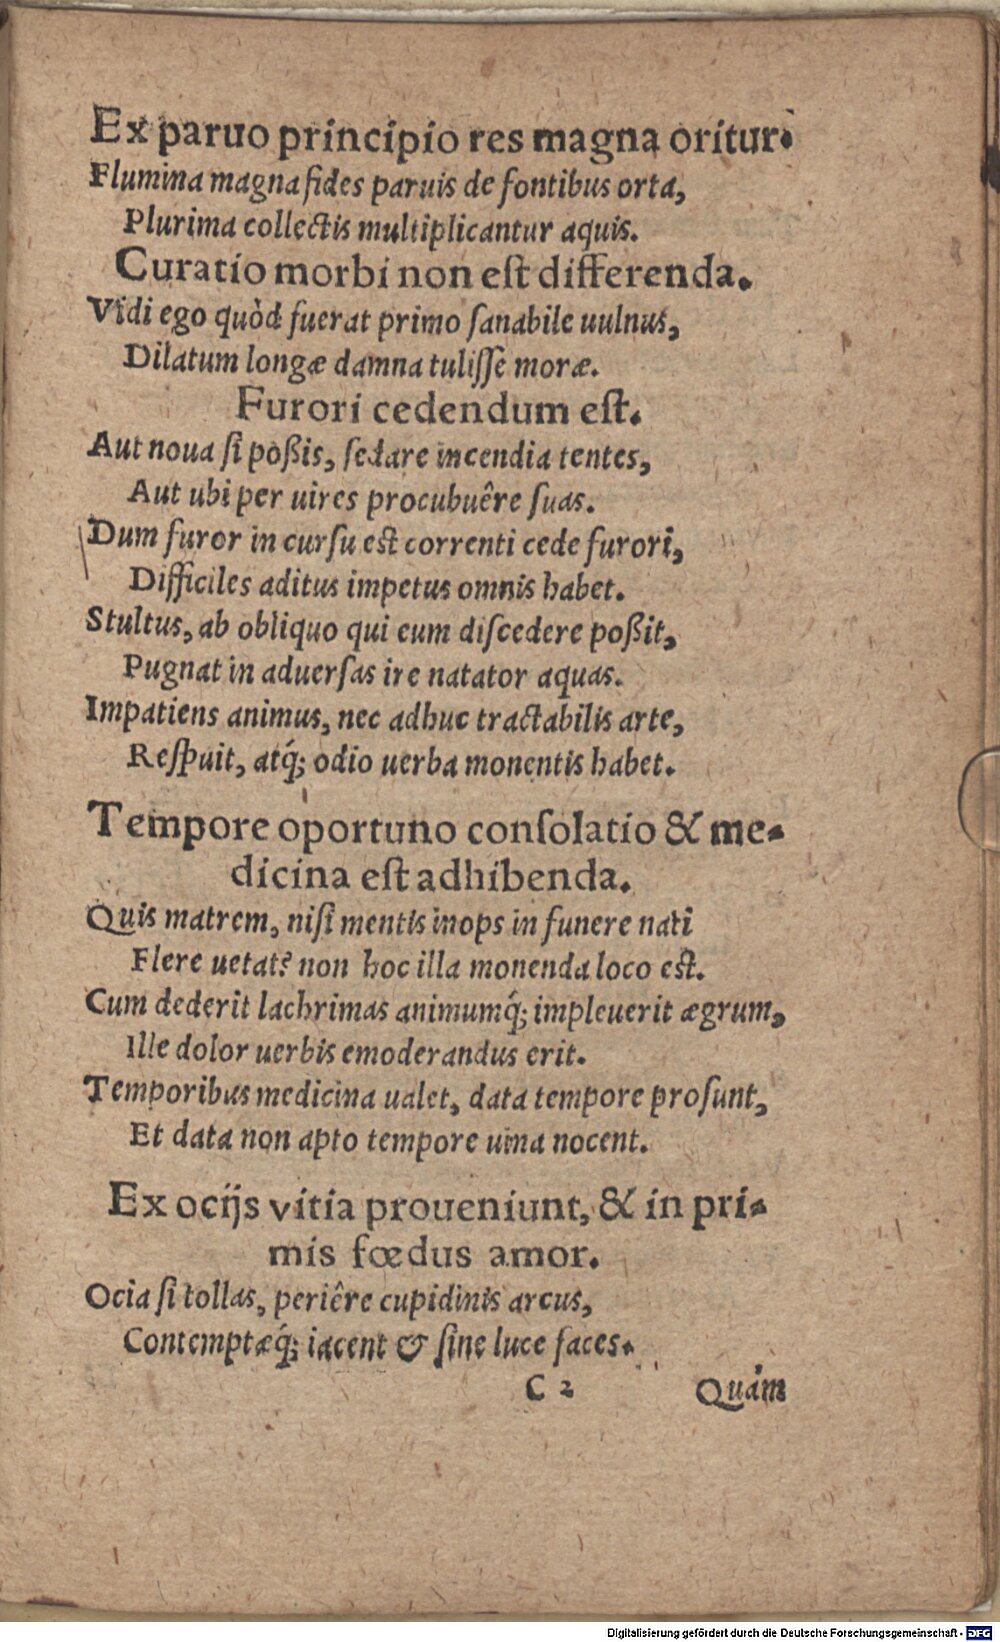 Ex paruo principio res magna oritur.
Flumina magna fides paruis de fontibus orta,
Plurima collectis multiplicantur aquis.
Curatio morbi non eſt differenda.
Vidi ego quòd fuerat primo ſanabile uulnus,
Dilatum longæ damna tuliſſe moræ.
Furori cedendum eſt.
Aut noua ſi poßis, ſedare incendia tentes,
Aut ubi per uires procubuêre ſuas.
Dum furor in curſu eſt correnti cede furori,
Difficiles aditus impetus omnis habet.
Stultus, ab obliquo qui cum diſcedere poßit,
Pugnat in aduerſas ire natator aquas.
Impatiens animus, nec adhuc tractabilis arte,
Reſpuit, atq́; odio uerba monentis habet.
Tempore oportuno conſolatio & me-
dicina eſt adhibenda.
Quis matrem, niſi mentis inops in funere nati
Flere uetat? non hoc illa monenda loco eſt.
Cum dederit lachrimas animumq́; impleuerit ægrum,
Ille dolor uerbis emoderandus erit.
Temporibus medicina ualet, data tempore proſunt,
Et data non apto tempore uina nocent.
Ex ocijs vitia proueniunt, & in pri-
mis fœdus amor.
Ocia ſi tollas, periêre cupidinis arcus,
Contemptæq́; iacent & ſine luce faces.
C 2 Quàm
Digitalisierung gefördert durch die Deutsche Forschungsgemeinschaft - DFG